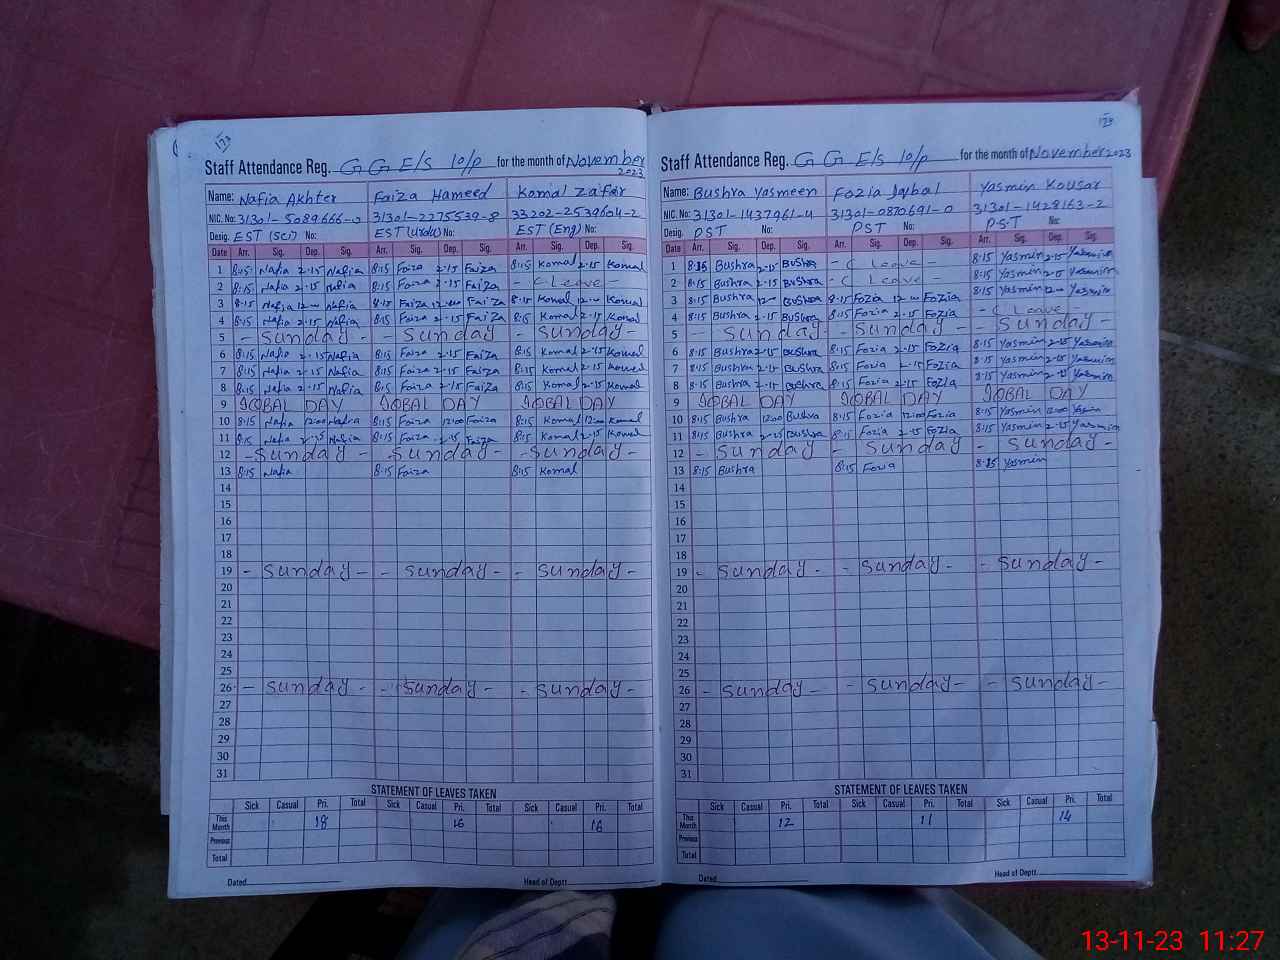 Staff Attendance Reg. G G E/S 10/P for the month of November 2023
Name: Nafia Akhter Faiza Hameed Komal Zafar
NIC. No: 31301-5089666-0 31301-2275539-8 33202-2539604-2
Desig. EST (Sci) No: EST (Urdu) No: EST (Eng) No:
Date Arr. Sig. Dep. Sig. Arr. Sig. Dep. Sig. Arr. Sig. Dep. Sig.
1 8:15 Nafia 2-15 Nafia 8:15 Faiza 2-15 Faiza 8:15 Komal 2-15 Komal
2 8:15 Nafia 2-15 Nafia 8:15 Faiza 2-15 Faiza - ( Leave -
3 8:15 Nafia 12- Nafia 8:15 Faiza 12- Faiza 8:15 Komal 12- Komal
4 8:15 Nafia 2-15 Nafia 8:15 Faiza 2-15 Faiza 8:15 Komal 2-15 Komal
5 - Sunday - - Sunday - Sunday -
6 8:15 Nafia 2-15 Nafia 8:15 Faiza 2-15 Faiza 8:15 Komal 2-15 Komal
7 8:15 Nafia 2-15 Nafia 8:15 Faiza 2-15 Faiza 8:15 Komal 2-15 Komal
8 8:15 Nafia 2-15 Nafia 8:15 Faiza 2-15 Faiza 8:15 Komal 2-15 Komal
9 IQBAL DAY IQBAL DAY IQBAL DAY
10 8:15 Nafia 12:00 Nafia 8:15 Faiza 12:00 Faiza 8:15 Komal 12:00 Komal
11 8:15 Nafia 2-15 Nafia 8:15 Faiza 2-15 Faiza 8:15 Komal 2-15 Komal
12 - Sunday - - Sunday - - Sunday -
13 8:15 Nafia 8:15 Faiza 8:15 Komal
14
15
16
17
18
19 - Sunday - - Sunday - - Sunday -
20
21
22
23
24
25
26 - Sunday - - Sunday - - Sunday -
27
28
29
30
31
STATEMENT OF LEAVES TAKEN
Sick Casual Pri. Total Sick Casual Pri. Total Sick Casual Pri. Total
This Month 18 16 16
Previous
Total
Dated Head of Deptt.
Staff Attendance Reg. G G E/S 10/P for the month of November 2023
Name: Bushra Yasmeen Fozia Iqbal Yasmin Kousar
NIC. No: 31301-1437961-4 31301-0870691-0 31301-1428163-2
Desig. PST No: PST No: PST No:
Date Arr. Sig. Dep. Sig. Arr. Sig. Dep. Sig. Arr. Sig. Dep. Sig.
1 8:15 Bushra 2-15 Bushra - ( Leave - 8:15 Yasmin 2-15 Yasmin
2 8:15 Bushra 2-15 Bushra - ( Leave 8:15 Yasmin 2-15 Yasmin
3 8:15 Bushra 12- Bushra 8:15 Fozia 12- Fozia 8:15 Yasmin 12- Yasmin
4 8:15 Bushra 2-15 Bushra 8:15 Fozia 2-15 Fozia - ( Leave -
5 - Sunday - Sunday - Sunday -
6 8:15 Bushra 2-15 Bushra 8:15 Fozia 2-15 Fozia 8:15 Yasmin 2-15 Yasmin
7 8:15 Bushra 2-15 Bushra 8:15 Fozia 2-15 Fozia 8:15 Yasmin 2-15 Yasmin
8 8:15 Bushra 2-15 Bushra 8:15 Fozia 2-15 Fozia 8:15 Yasmin 2-15 Yasmin
9 IQBAL DAY IQBAL DAY IQBAL DAY
10 8:15 Bushra 12:00 Bushra 8:15 Fozia 12:00 Fozia 8:15 Yasmin 12:00 Yasmin
11 8:15 Bushra 2-15 Bushra 8:15 Fozia 2-15 Fozia 8:15 Yasmin 2-15 Yasmin
12 - Sunday - Sunday - Sunday -
13 8:15 Bushra 8:15 Fozia 8:15 Yasmin
14
15
16
17
18
19 - Sunday - - Sunday - - Sunday -
20
21
22
23
24
25
26 - Sunday - - Sunday - - Sunday -
27
28
29
30
31
STATEMENT OF LEAVES TAKEN
Sick Casual Pri. Total Sick Casual Pri. Total Sick Casual Pri. Total
This Month 12 11 14
Previous
Total
Dated Head of Deptt.
13-11-23 11:27